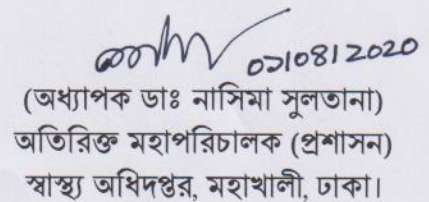 ০১/০৪/2020
(অধ্যাপক ডাঃ নাসিমা সুলতানা)
অতিরিক্ত মহাপরিচালক (প্রশাসন)
স্বাস্থ্য অধিদপ্তর, মহাখালী, ঢাকা।